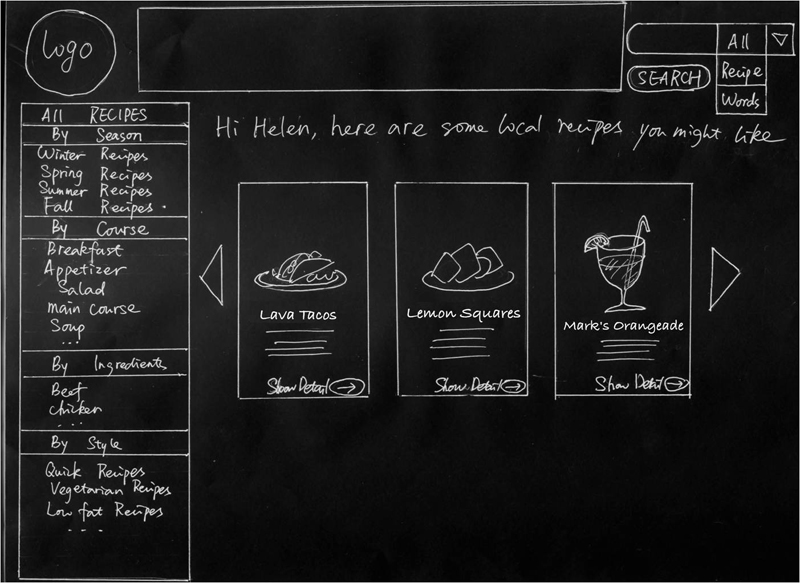 Logo
All
SEARCH
Recipe
Words
All RECIPES
By Season
Winter Recipes
Spring Recipes
Summer Recipes
Fall Recipes.
By Course
Breakfast
Appetizer
Salad
main Course
Soup
...
By Ingredients
Beef
Chicken
....
By Style
Quick Recipes
Vegetarian Recipes
Low fat Recipes
....
Hi Helen, here are some local recipes you might like
Lava Tacos
Show Detail
Lemon Squares
Show Detail
Mark's Orangeade
Show Detail